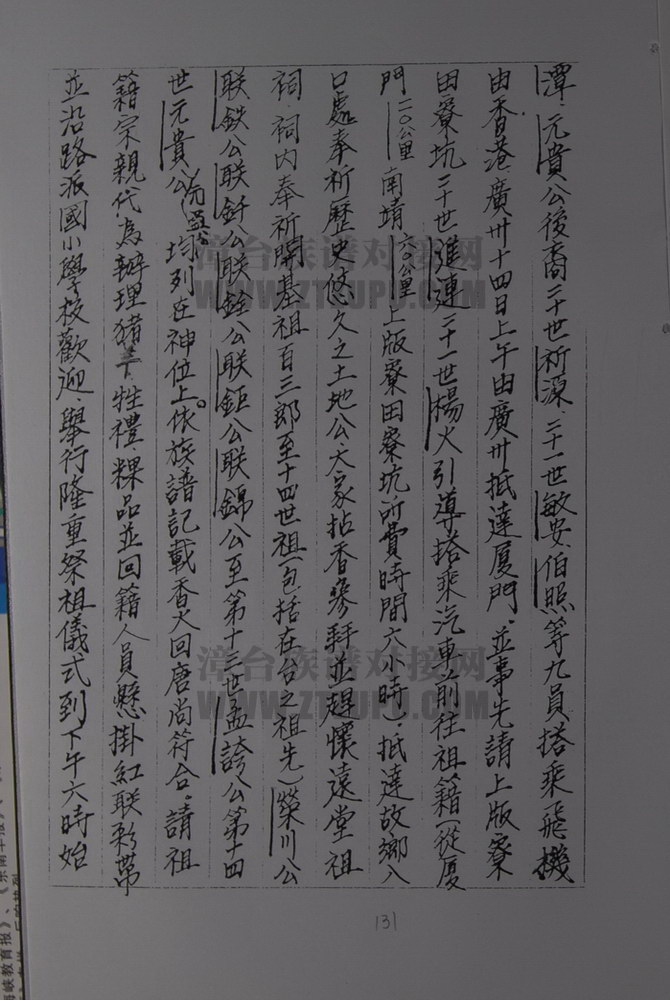 潭、元貴公後裔二十世祈深、二十一世敏安、伯照等九員、搭乘飛機
由香港、廣卅十四日上午由廣卅抵達厦門。並事先請上版寮
田寮坑二十世進連二十一世楊火引導搭乘汽車前往祖籍（從厦
門二〇公里南靖六〇公里上版寮田寮坑所費時間六小時）抵達故鄉入
口處奉祈歷史悠久之土地公、大家拈香參拜並趕懷遠堂祖
祠、祠内奉祈開基祖百三郎至十四世祖（包括在台之祖先）榮川公
联鉄公联釬公联銓公联鉅公联錦公至第十三世孟誇公第十四
世元貴公均列在神位上。依族譜記載香火回唐尚符合。請祖
籍宗親代為辦理豬羊、牲禮、粿品並回籍人員懸掛紅联彩帶
並沿路派國小學校歡迎、舉行隆重祭祖儀式到下午六時始
131
漳台族谱对接网
WWW.ZTZUPU.COM
漳台族谱对接网
WWW.ZTZUPU.COM